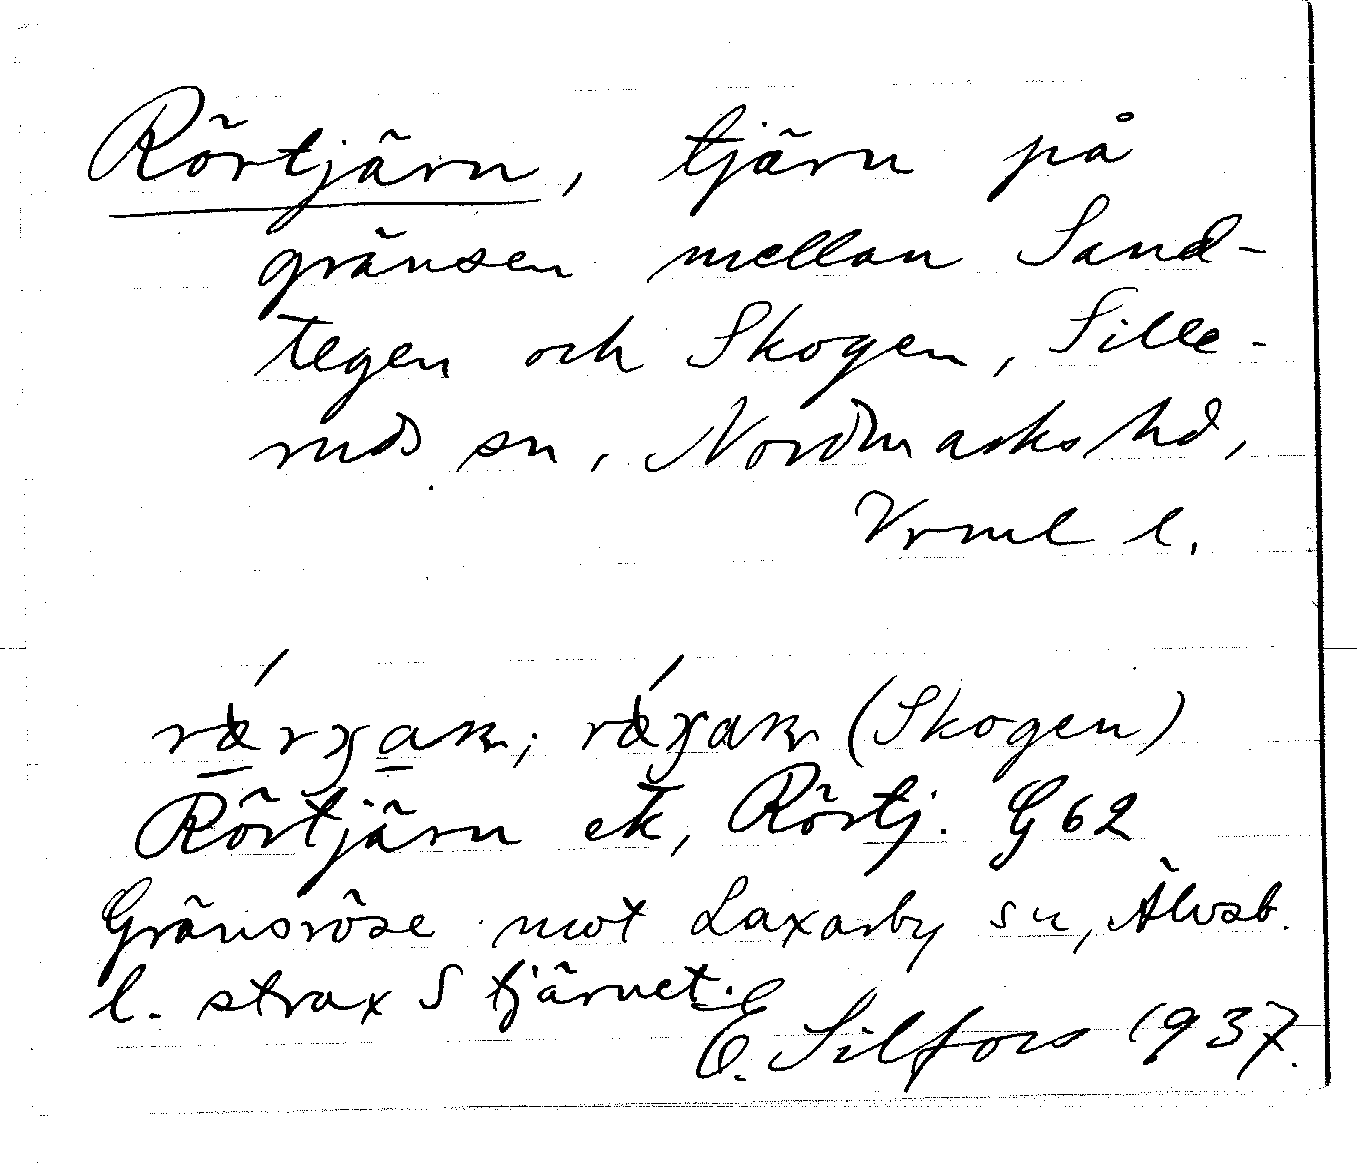 Rörtjärn, tjärn på
gränsen mellan Sand-
tegen och Skogen, Sille-
ruds sn, Nordmarks hd,
Vrml l.
(Skogen)
Rörtjärn ek, Rörtj. G62
Gränsröse mot Laxarby sn, Älvsb.
l. strax S tjärnet.
E. Silfors 1937.